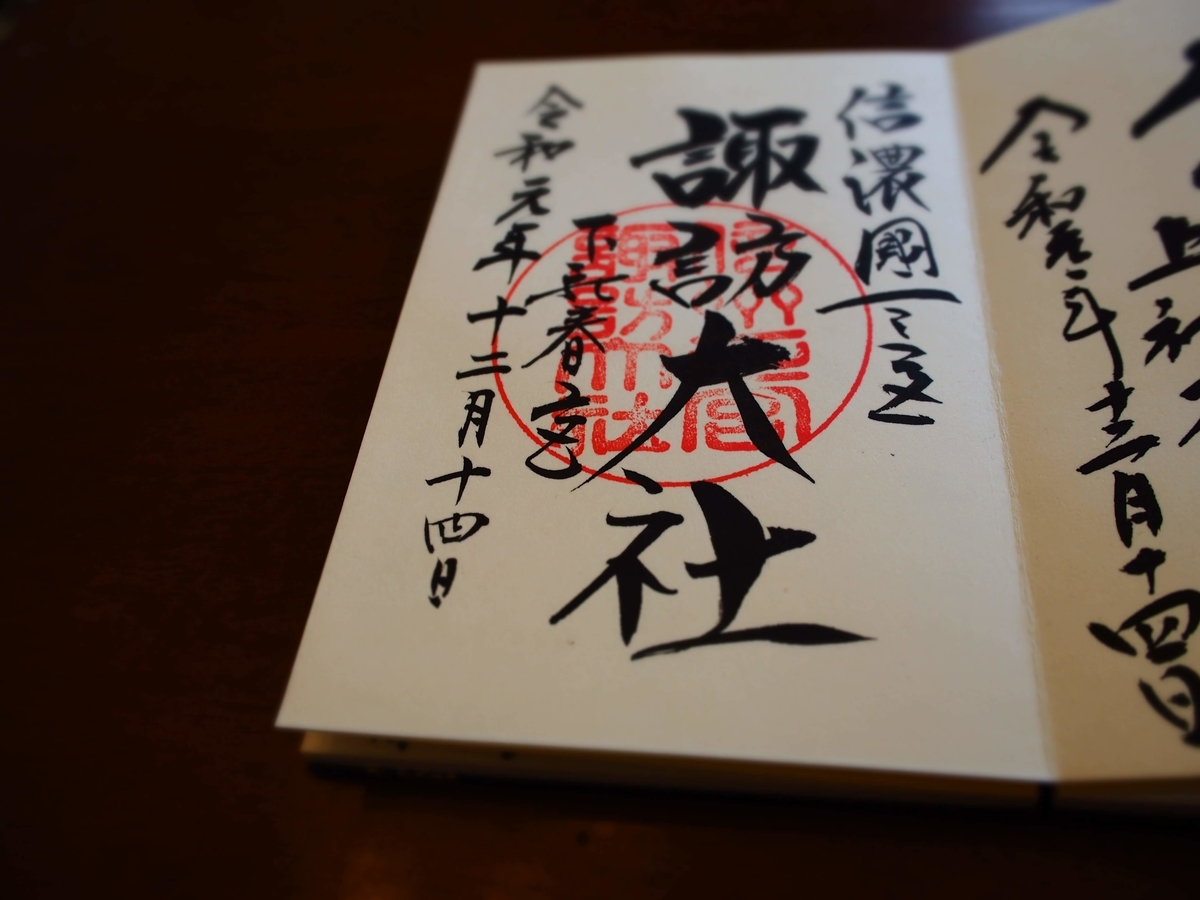 上社
令和元年十二月十四日
信濃國一之宮
諏訪大社
下社春宮
令和元年十二月十四日